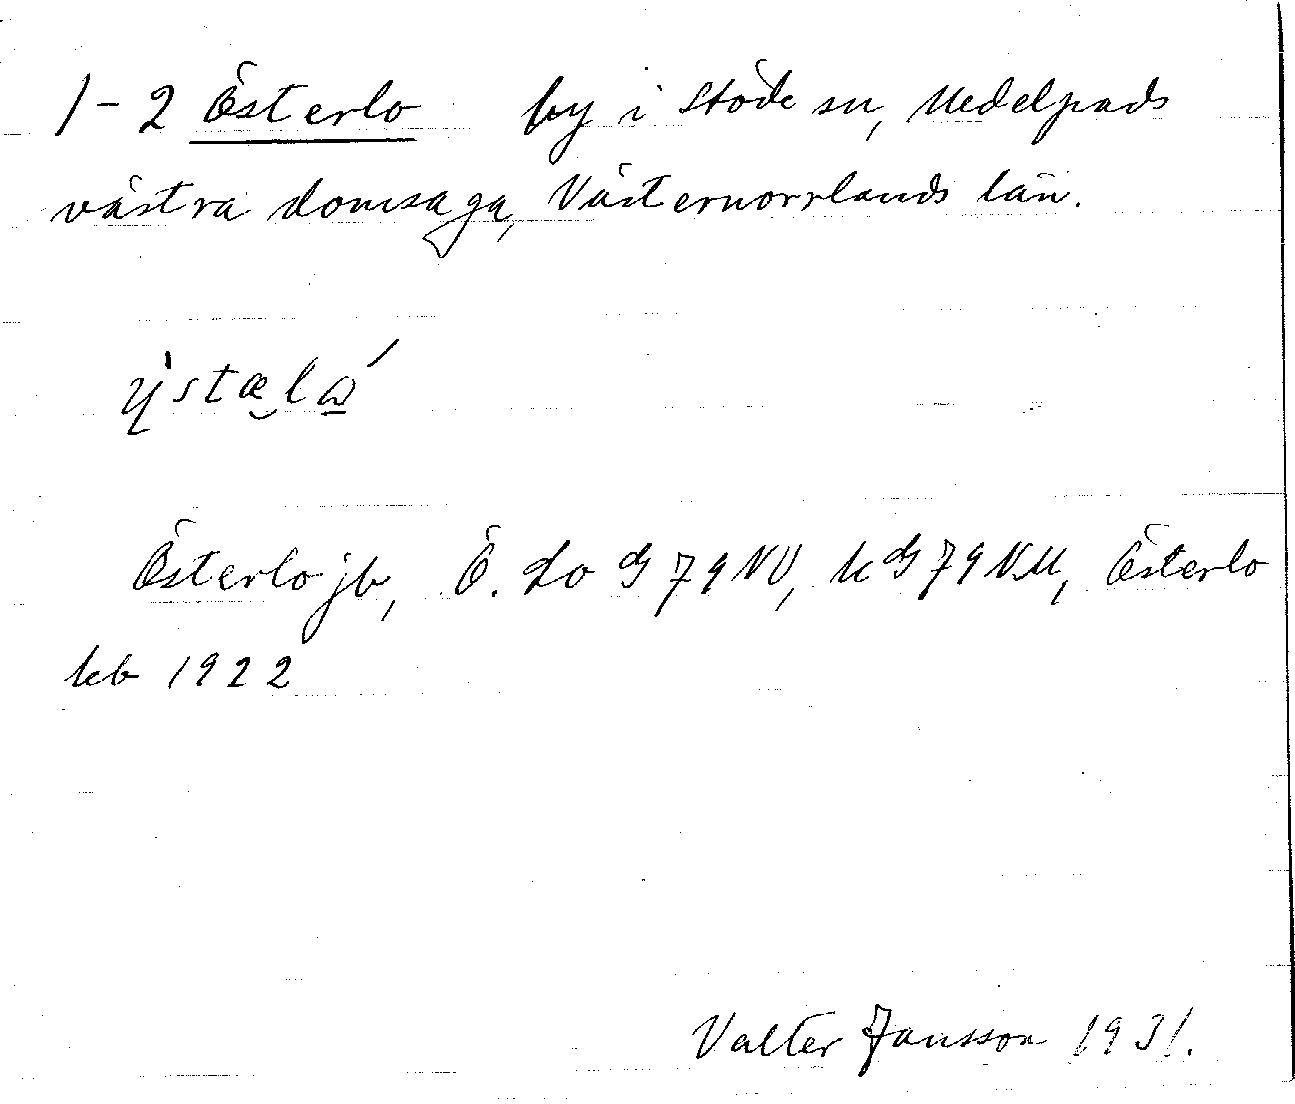 1-2 Österlo by i Stöde sn, Medelpads
västra domsaga, Västernorrlands län.
Österlo jb, Ö. Lo G 79 NV, k G 79 NM, Österlo
kb 1922
Valter Jansson 1931.